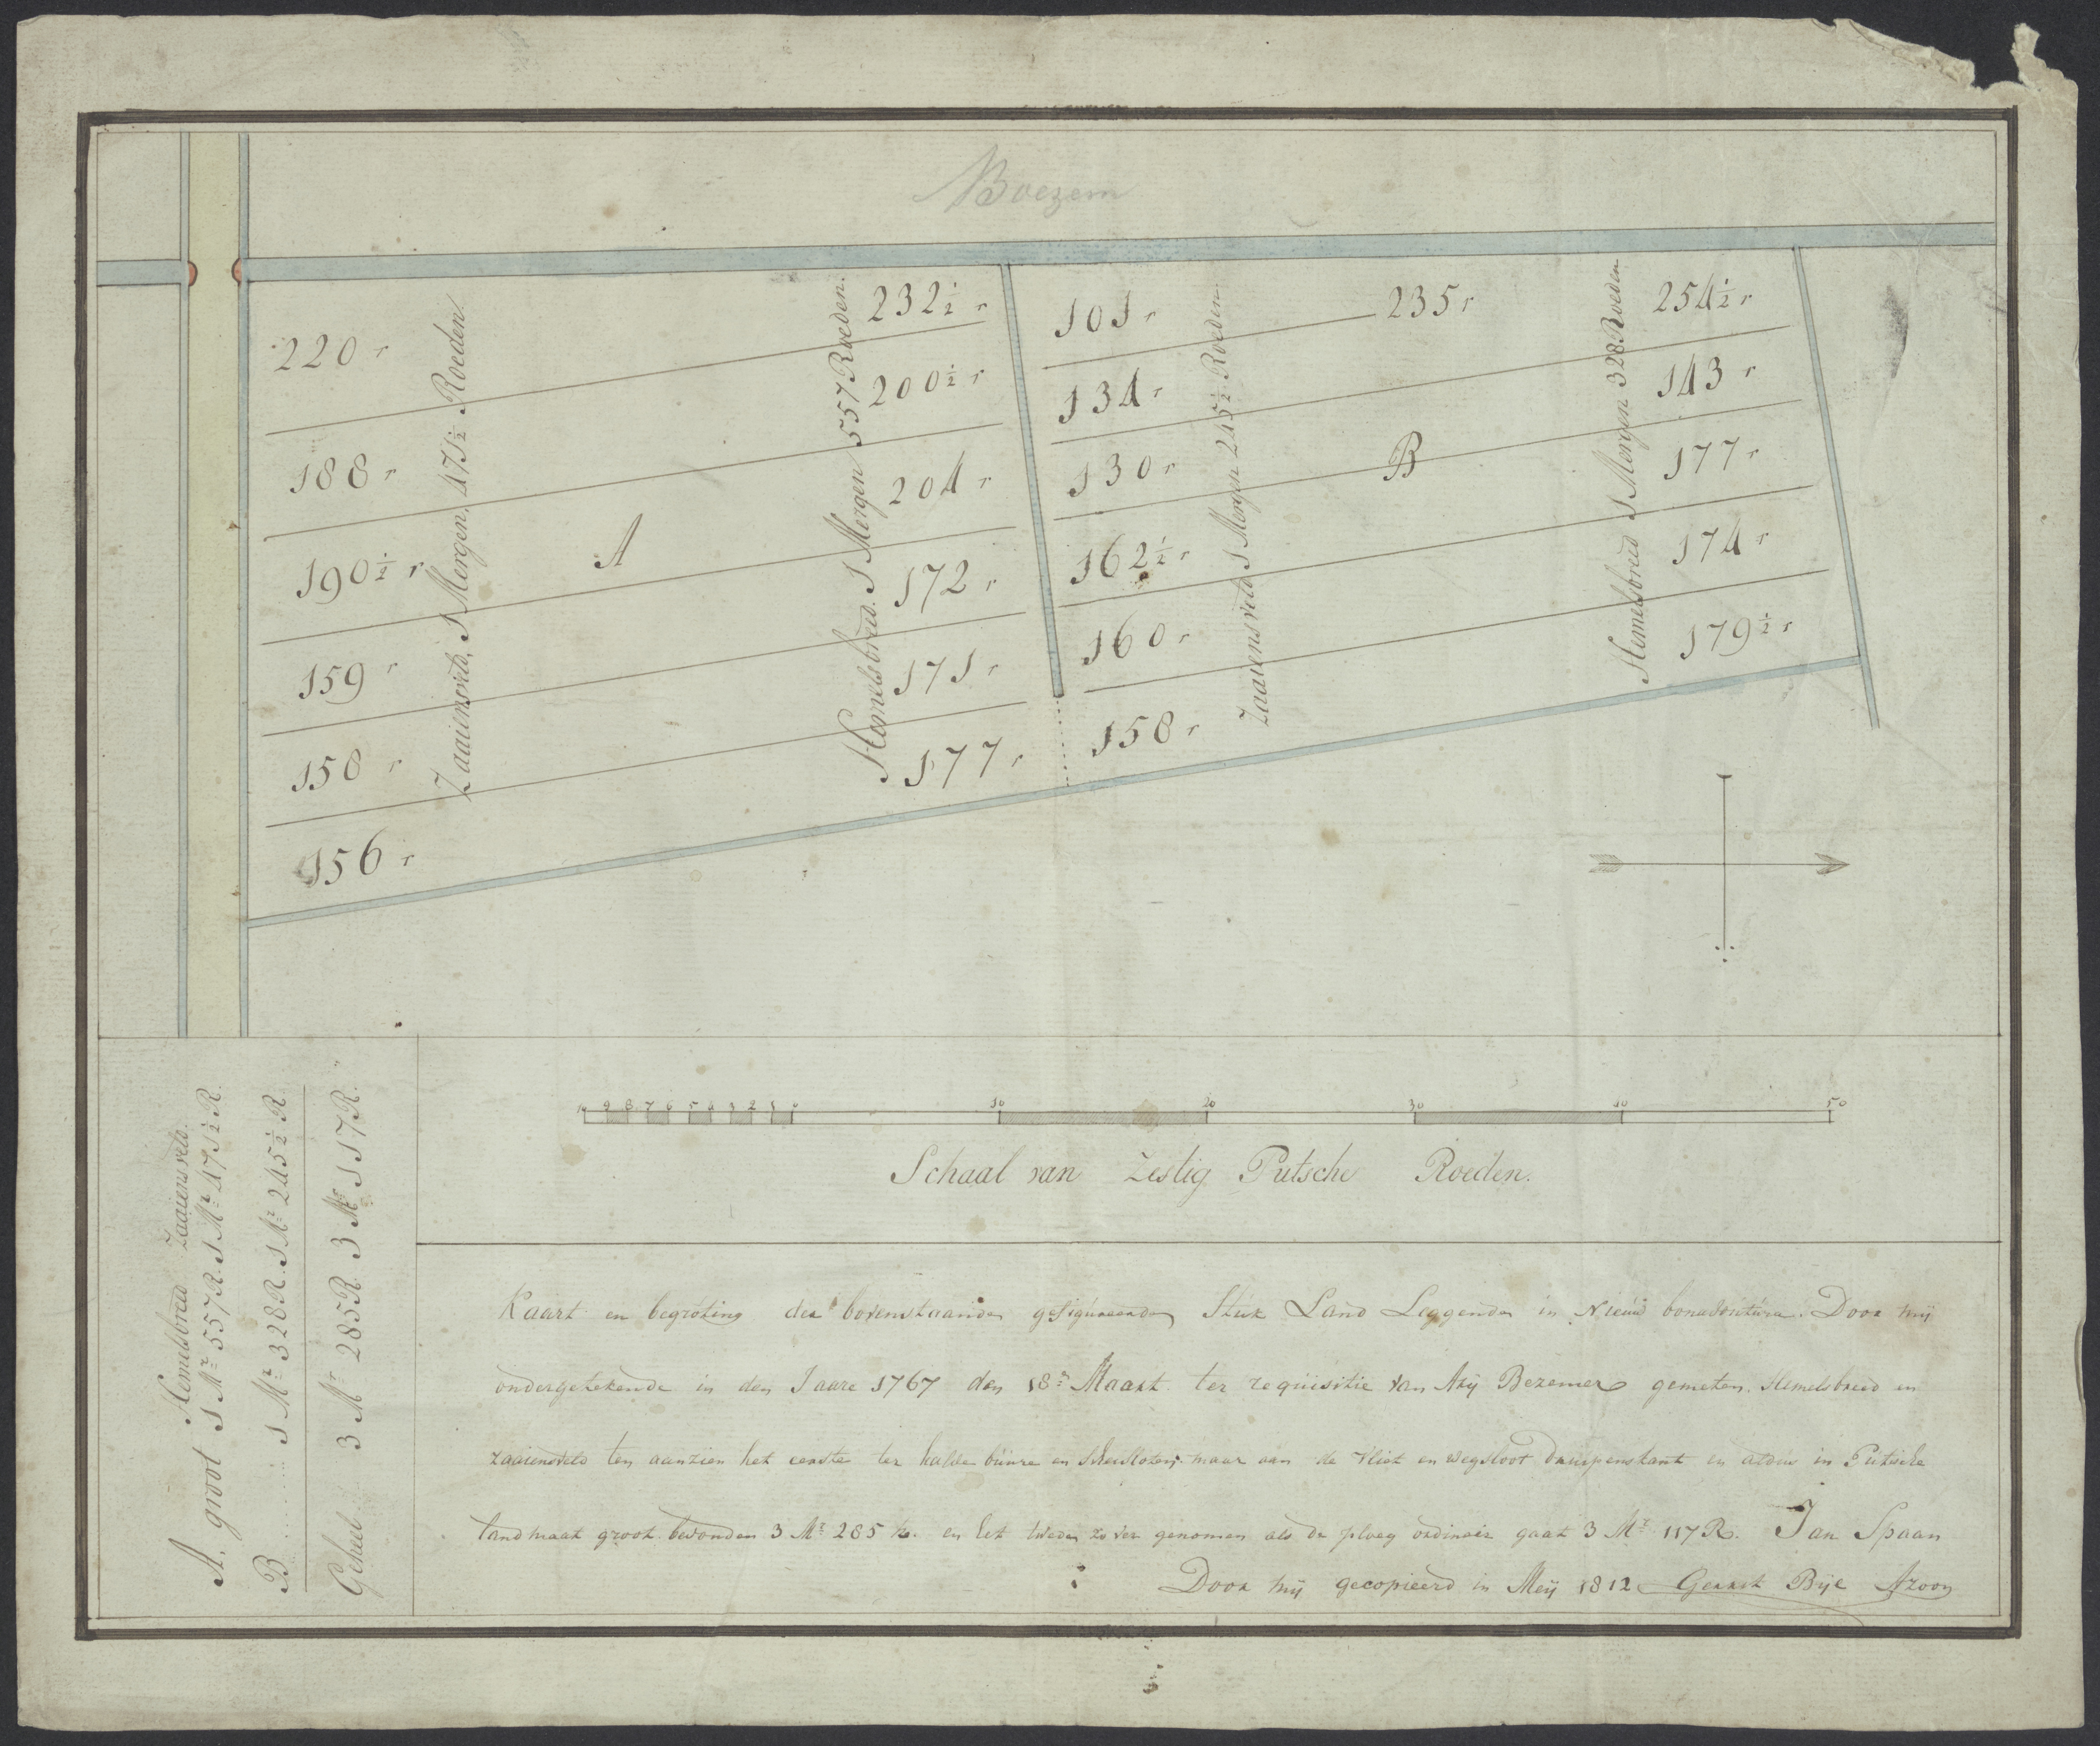 Boezem
220 r
188 r
190½ r
159 r
158 r
156 r
Zaaiensveld, 1 Mergen, 471½ Roeden.
A
Hemelsbreed. 1 Mergen 557 Roeden.
232½ r
200½ r
204 r
172 r
171 r
177 r
101 r
134 r
130 r
162½ r
160 r
158 r
Zaaiensveld 1 Mergen 245½ Roeden.
235 r
B
Hemelsbreed 1 Mergen 328 Roeden
254½ r
143 r
177 r
174 r
179½ r
10 9 8 7 6 5 4 3 2 1 0 10 20 30 40 50
Schaal van Zestig Putsche Roeden.
Hemelsbreed Zaaiensveld.
A. groot 1 Mr 557 R. 1 Mr 471½ R.
B ........ 1 Mr 328 R. 1 Mr 245½ R
Geheel 3 Mr 285 R. 3 Mr 117 R.
Kaart en begroting der bovenstaande gefigureerde Stuk Land Leggende in Nieuw bonaventura. Door mij
ondergetekende in den Jaare 1767 den 18n Maart ter requisitie van Arij Bezemer gemeten. Hemelsbreed en
zaaiensveld ten aanzien het eerste ter halve buure en Scheisloten, maar aan de vliet en wegsloot druipenskant en aldus in Putsche
landmaat groot bevonden 3 Mr 285 R. en het tweede zo ver genomen als de ploeg ordinair gaat 3 Mr 117 R. Jan Spaan
Door mij gecopieerd in Meij 1812 Gerrit Bije Azoon